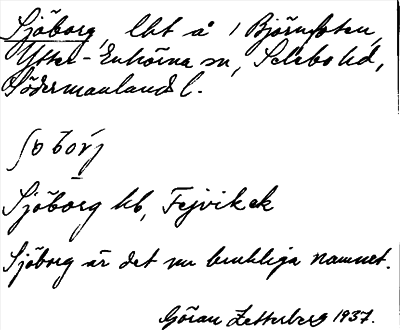 Sjöborg, lht å 1 Björnfoten,
Ytter-Enhörna sn, Selebo hd,
Södermanlands l.
Sjöborg hb, Fejvik ek
Sjöborg är det nu brukliga namnet.
Göran Zetterberg 1937.